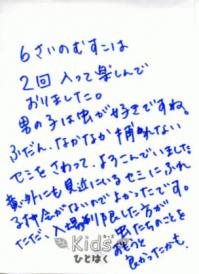 6さいのむすこは
2回入って楽しんで
おりました。
男の子は虫が好きですね。
ふだん、なかなか捕れない
セミをさわって、よろこんでいました。
意外にも身近にいるセミにふれ
る機会がないのでよかったです。
ただ、入場制限した方が
虫たちのことを
思うと
良かったかも。
Kids
ひとはく